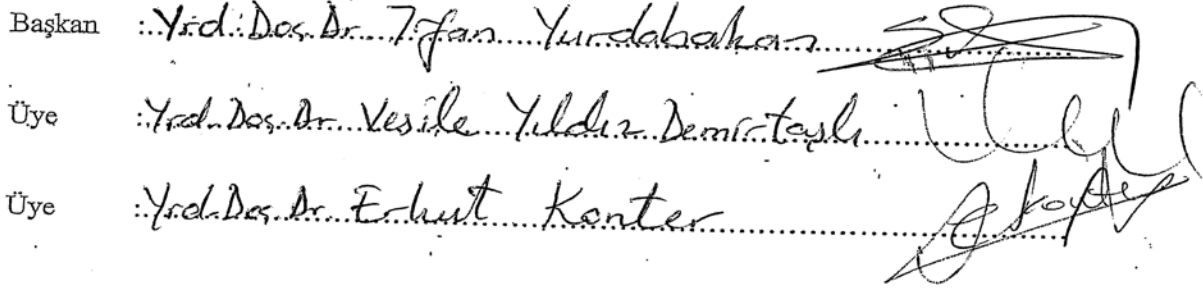 Başkan : Yrd. Doç. Dr. İrfan Yurdabakan
Üye : Yrd. Doç. Dr. Vesile Yıldız Demirtaşlı
Üye : Yrd. Doç. Dr. Erkut Konter